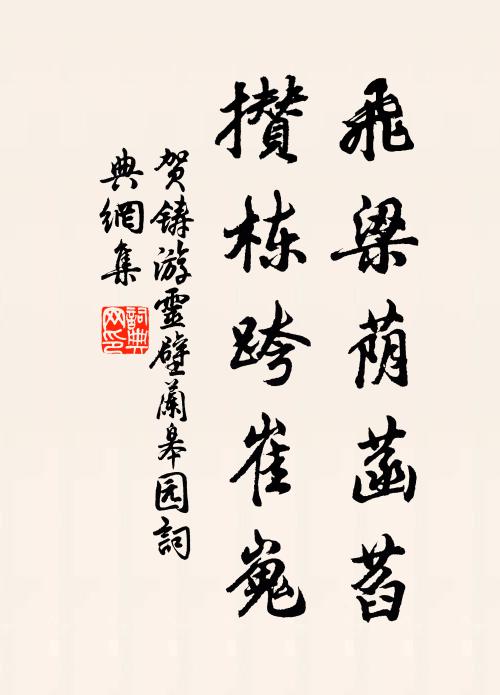 飛梁荫菡萏
攅栋跨崔嵬
贺鋳游靈壁蘭皋园詞
典網集
詞典网印